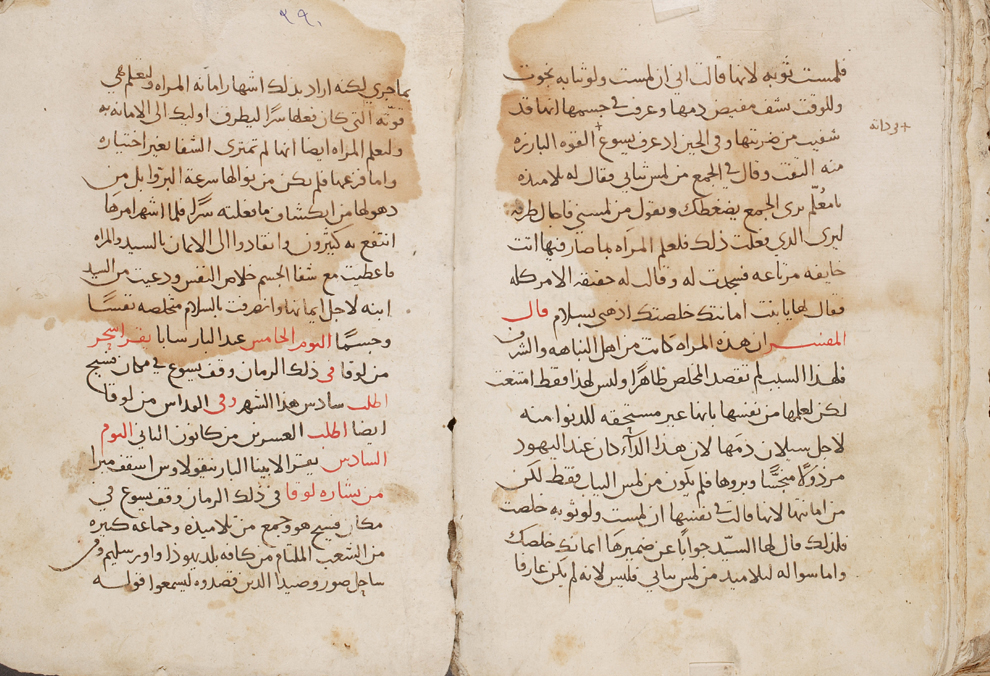 فلمست ثوبه لانها قالت اني ان لمست ولو ثيابه نجوت
وللوقت نشف مفيض دمها وعرفت في جسمها انها قد
شفيت من ضربتها وفي الحين اذ عرف يسوع القوه البارزه
+ في ذاته
منه التفت وقال في الجمع من لمس ثيابي فقال له تلاميذه
يا معلم نرى الجمع يضغطك وتقول من لمسني فاجال طرفه
ليرى الذي فعلت ذلك فلعلم المراه بما صار فيها اتت
خايفه مرتاعه فسجدت له وقالت له حقيقة الامر كله
فقال لها يا بنت امانتك خلصتك اذهبي بسلام قال
المفسر ان هذه المراه كانت من اهل النباهه والشرف
فلهذا السبب لم تقصد المخلص ظاهرًا وليس لهذا فقط امتنعت
لكن لعلمها من نفسها بانها غير مستحقه للدنوا منه
لاجل سيلان دمها لان هذا الداء كان عند اليهود
مرذولًا متجنبًا ويروها فلم يكون من لمس الثياب فقط لكن
من امانتها لانها قالت في نفسها ان لمست ولو ثوبه خلصت
فلذلك قال لها السيد جوابًا عن ضميرها امانتك خلصتك
واما سواله لتلاميذ من لمس ثيابي فليس لانه لم يكن عارفا
٢٩٠
بما جرى لكنه اراد بذلك اشهار امانه المراه وليعلم هي
قوته التي كان فعلها سرًا ليطرق اوليك الى الامانه به
ولتعلم المراه ايضا انها لم تمترى الشفا بغير اختياره
واما فزعها فلم يكن من نوالها سرعة البر وا بل من
دهولها من انكشاف ما فعلته سرًا فلما اشهر امرها
انتفع به كثيرون وانقادوا الى الايمان بالسيد والمراه
فاعطيت مع شفا الجسم خلاص النفس ودعيت من السيد
ابنه لاجل ايمانها وانصرفت بالسلام متخلصه نفسًا
وجسمًا اليوم الخامس عيد البار سابا يقرا سحر
من لوقا في ذلك الزمان وقف يسوع في مكان فسيح
اطلب سادس هذا الشهر وفي القداس من لوقا
ايضا اطلب العشرين من كانون الثاني اليوم
السادس يقرا لابينا البار نيقولاوس اسقف ميرا
من بشاره لوقا في ذلك الزمان وقف يسوع في
مكان فسيح هو وجمع من تلاميذه وجماعه كثيره
من الشعب الملتام من كافه بلد يهوذا واورسليم وفي
ساحل صور وصيدا الذين قصدوه ليسمعوا قوله